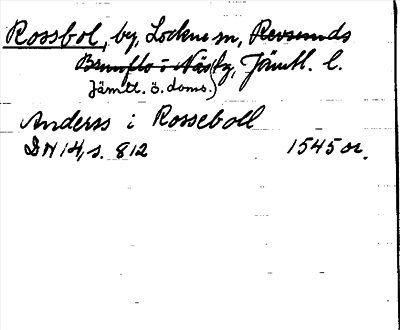 Rossbol, by, Lockne sn, Revsunds
Brunflo o Näs tg, Jämtl. l.
Jämtl. ö. doms.)
Anderss i Rosseboll
DN 14, s. 812 1545 or.